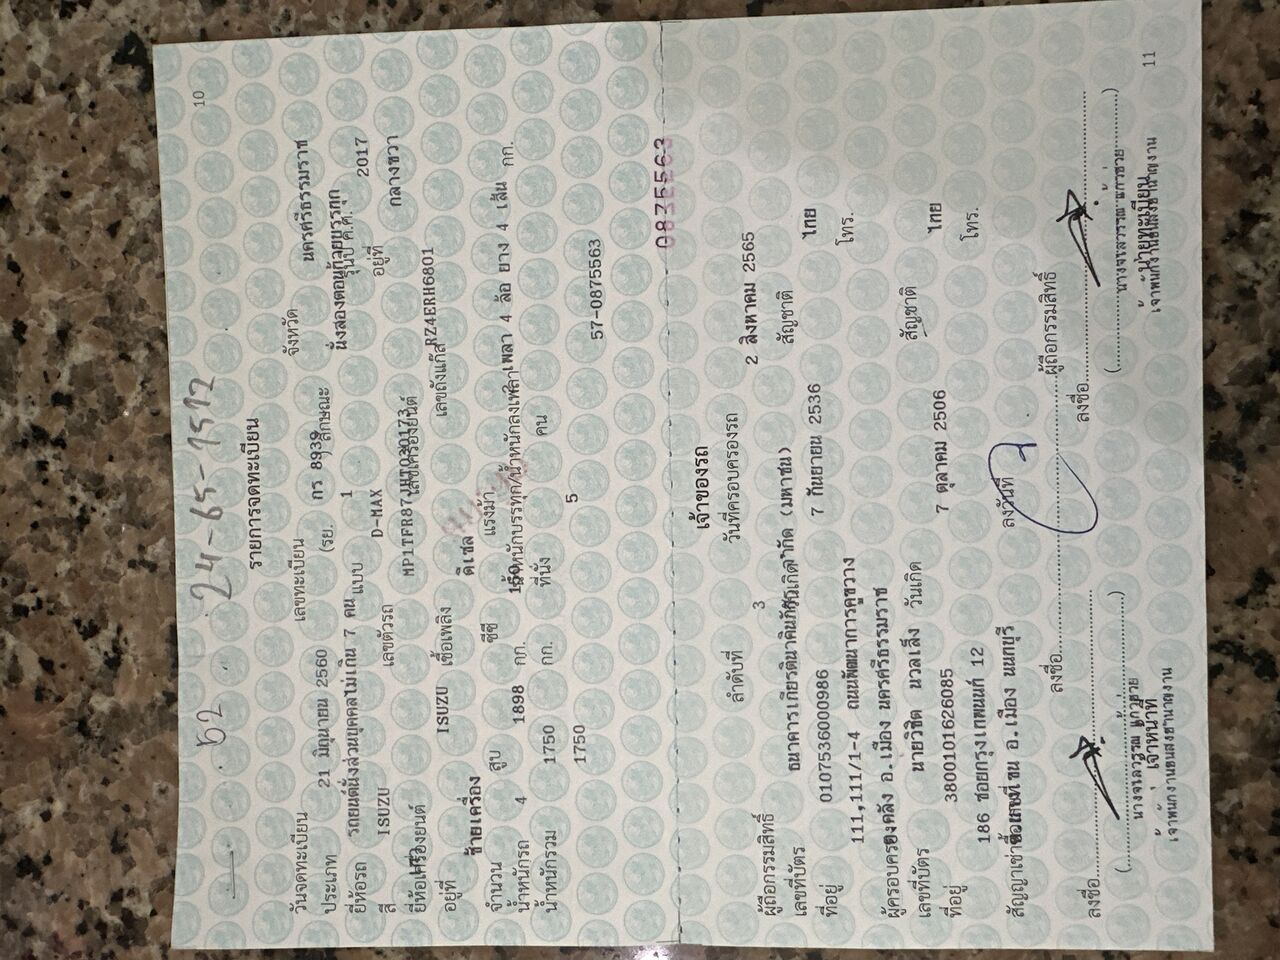 10
52 24-65-1512
รายการจดทะเบียน
วันจดทะเบียน 21 มิถุนายน 2560 เลขทะเบียน กร 8939 จังหวัด นครศรีธรรมราช
ประเภท รถยนต์นั่งส่วนบุคคลไม่เกิน 7 คน (รย. 1 ) ลักษณะ นั่งสองตอนท้ายบรรทุก
ยี่ห้อรถ ISUZU แบบ D-MAX รุ่นปี ค.ศ. 2017
สี เลขตัวรถ MP1TFR87JHT023017 อยู่ที่ กลางขวา
ยี่ห้อเครื่องยนต์ ISUZU เลขเครื่องยนต์ RZ4ERH6801
อยู่ที่ ซ้ายเครื่อง เชื้อเพลิง ดีเซล เลขถังแก๊ส
จำนวน 4 สูบ 1898 ซีซี 150 แรงม้า 2 เพลา 4 ล้อ ยาง 4 เส้น
น้ำหนักรถ 1750 กก. น้ำหนักบรรทุก/น้ำหนักลงเพลา กก.
น้ำหนักรวม 1750 กก. ที่นั่ง 5 คน
57-0875563
0835563
เจ้าของรถ
ลำดับที่ 3 วันที่ครอบครองรถ 2 สิงหาคม 2565
ผู้ถือกรรมสิทธิ์ ธนาคารเกียรตินาคินภัทร จำกัด (มหาชน)
เลขที่บัตร 0107536000986 วันเกิด 7 กันยายน 2536 สัญชาติ ไทย
ที่อยู่ 111,111/1-4 ถนนพัฒนาการคูขวาง
โทร.
ต.คลัง อ.เมือง นครศรีธรรมราช
ผู้ครอบครอง นายวิชิต นวลเล็ง
เลขที่บัตร 3800101626085 วันเกิด 7 ตุลาคม 2506 สัญชาติ ไทย
ที่อยู่ 186 ซอยกรุงเทพนนท์ 12
โทร.
อ.เมือง นนทบุรี
สัญญาเช่าซื้อเลขที่ ลงวันที่
ลงชื่อ ผู้ถือกรรมสิทธิ์
ลงชื่อ ลงชื่อ
เจ้าหน้าที่ นายทะเบียน
เจ้าพนักงานขนส่งชำนาญงาน เจ้าพนักงานขนส่งชำนาญงาน
11